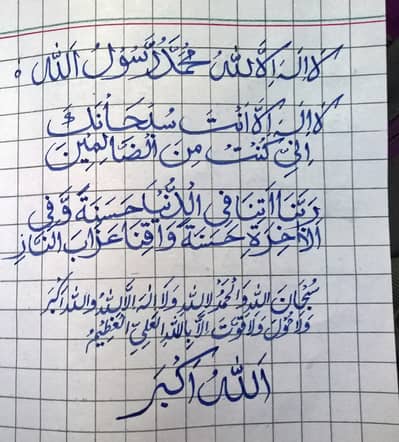 لَا اِلٰهَ اِلَّا اللهُ مُحَمَّدٌ رَّسُوْلُ اللهِ
لَا اِلٰهَ اِلَّا اَنْتَ سُبْحَانَكَ
اِنِّیْ كُنْتُ مِنَ الضَّالِمِیْنَ
رَبَّنَا اٰتِنَا فِی الدُّنْیَا حَسَنَةً وَّ فِی
الْاٰخِرَةِ حَسَنَةً وَّ قِنَا عَذَابَ النَّارِ
سُبْحَانَ اللهِ وَالْحَمْدُ لِلهِ وَلَا اِلٰهَ اِلَّا اللهُ وَاللهُ اَكْبَرُ
وَلَا حَوْلَ وَلَا قُوَّتَ اِلَّا بِاللهِ الْعَلِیِّ الْعَظِیْمُ
اَللهُ اَكْبَرَ